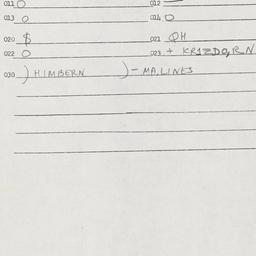 011 O 012
013 O 014 O
020 $ 021 QH
022 O 023 + KR1ZDO,RN
030 ) HIMBERN )- MA,LINES